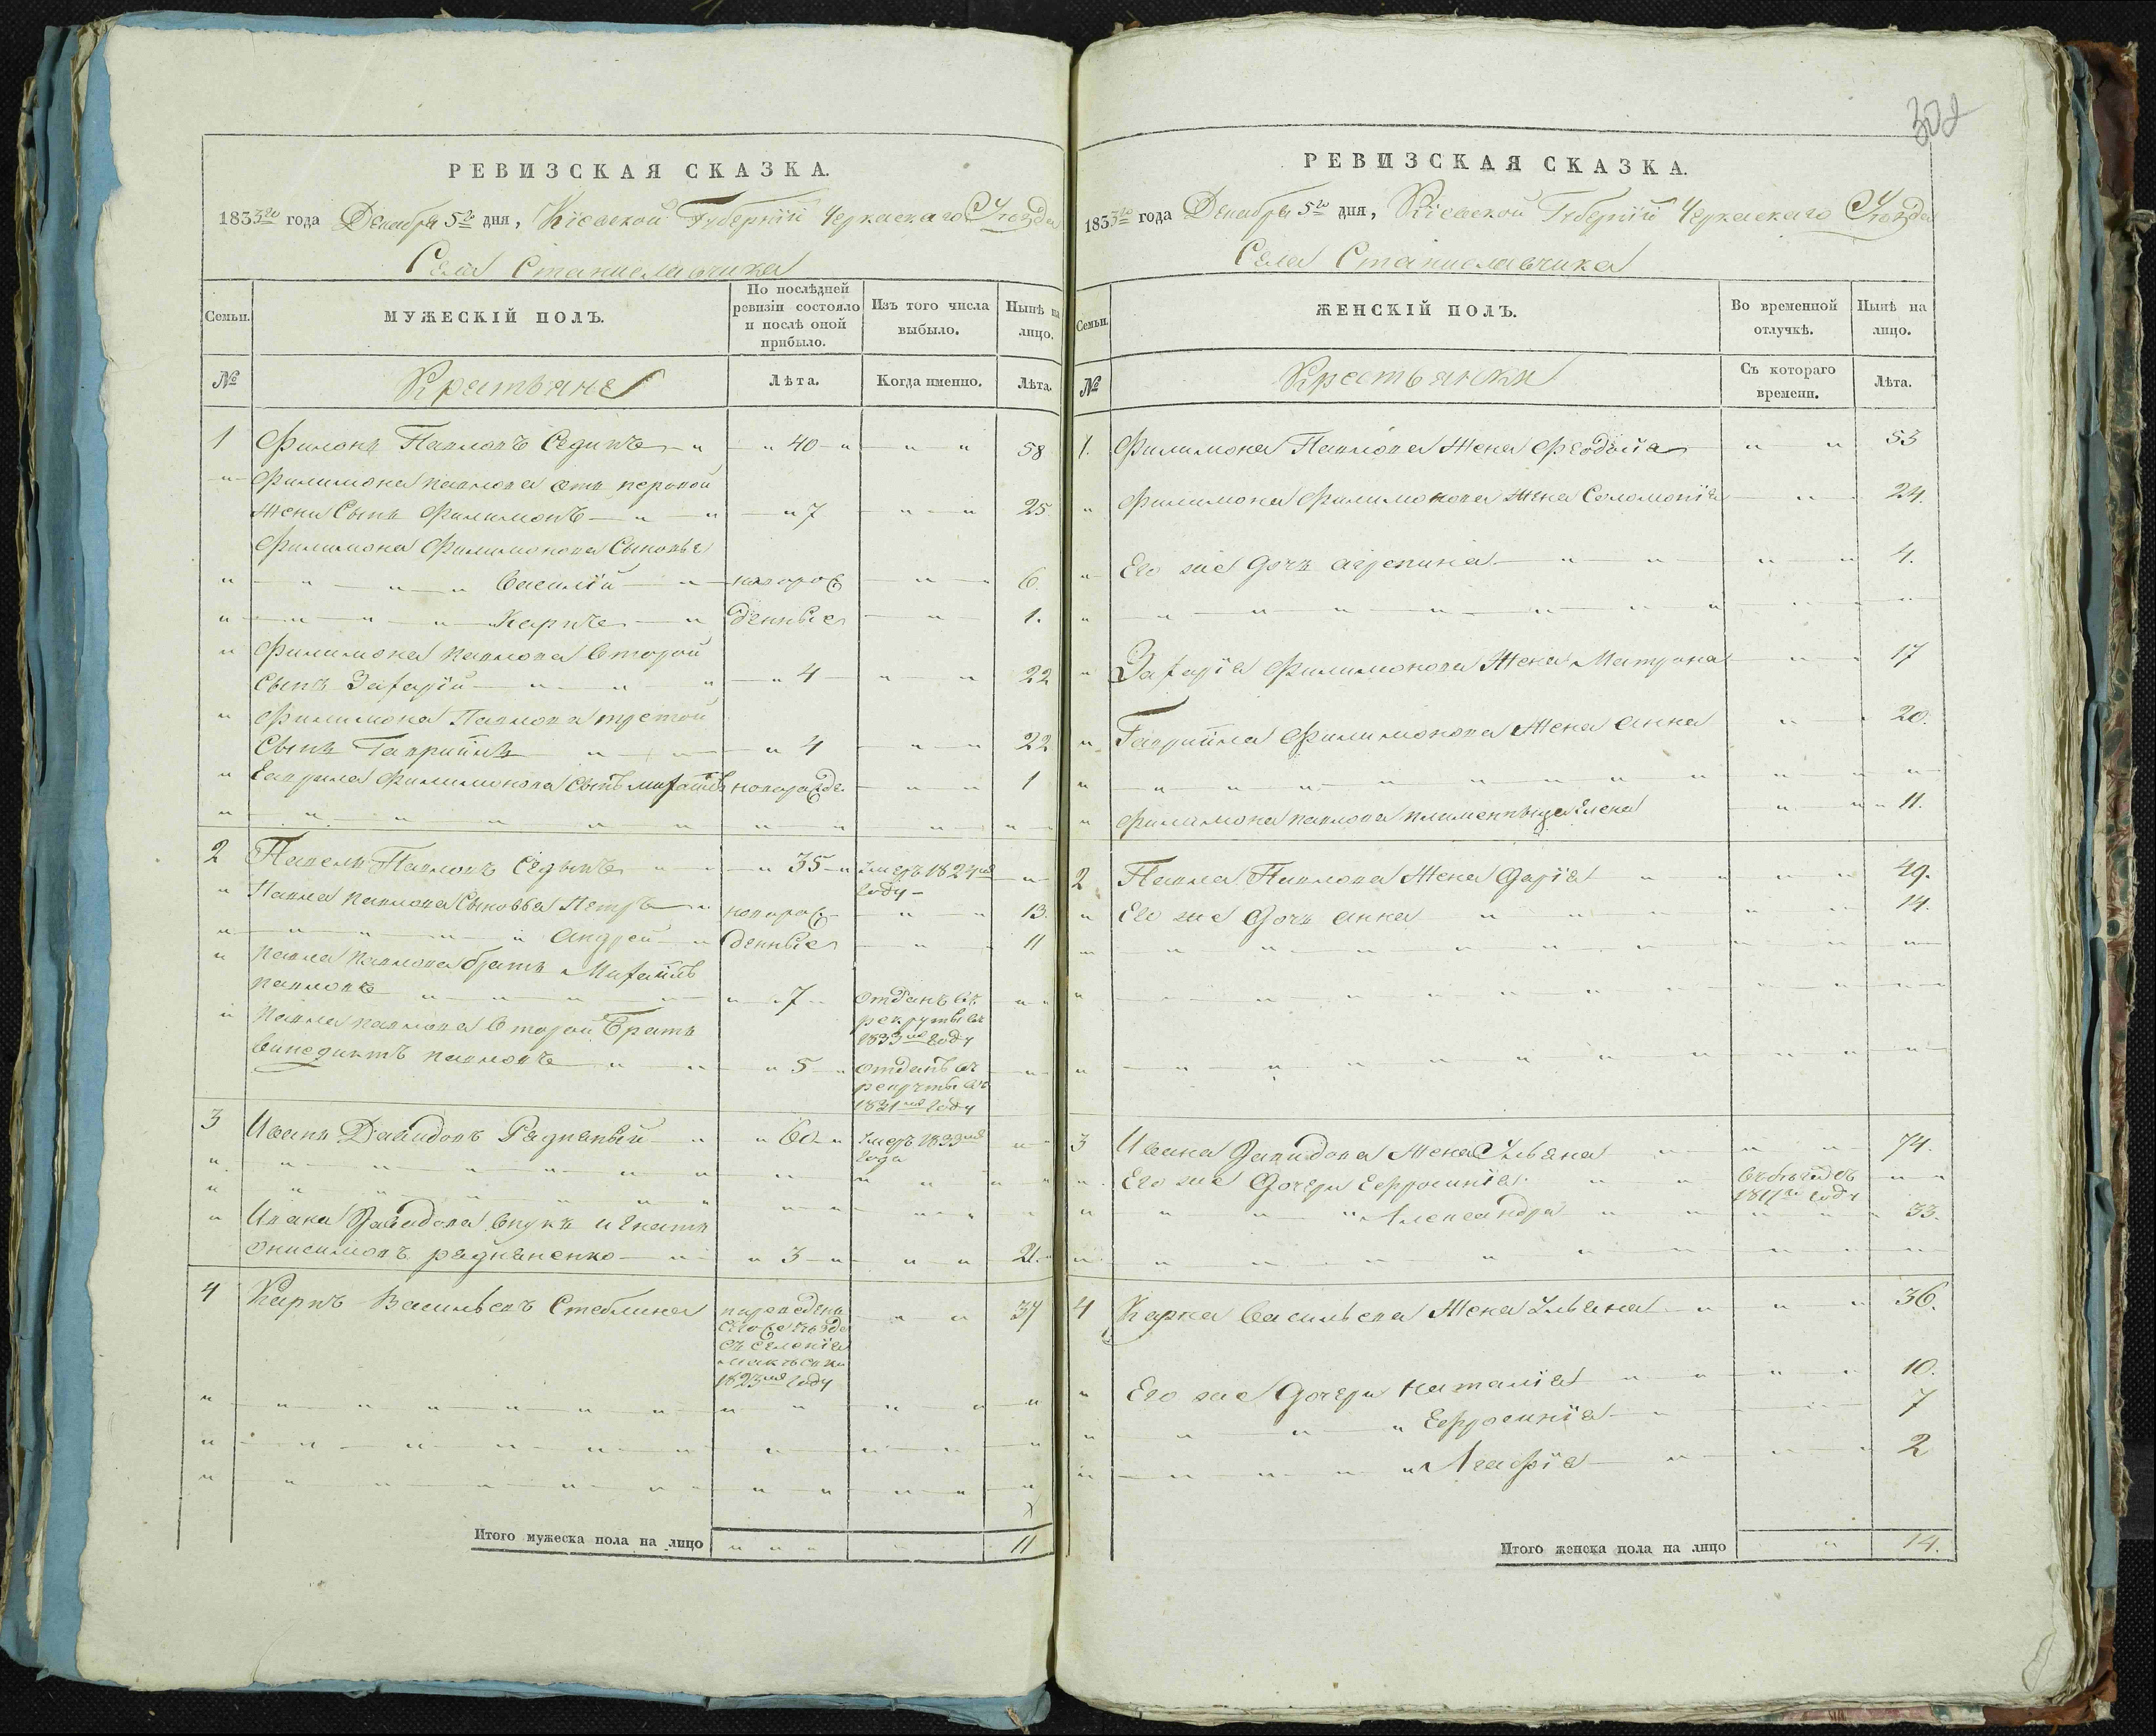 302
РЕВИЗСКАЯ СКАЗКА.
1833го года Декабря 5го дня, Кіевской Губерніи Черкаскаго Уѣзда
Села Станиславчика
Семьи.
МУЖЕСКІЙ ПОЛЪ.
По послѣдней ревизіи состояло и послѣ оной прибыло.
Изъ того числа выбыло.
Нынѣ на лицо.
№
Крестьяне
Лѣта.
Когда именно.
Лѣта.
1 Филонъ Павловъ 40 58
Филимона Павлова отъ первой
жены Сынъ Филимонъ 7 25
Филимона Филимонова Сыновья
Василій новорож 6
Карпъ денные 1.
Филимона Павлова второй
сынъ Захарій 4 22
Филимона Павлова третой
Сынъ Гавріилъ 4 22
Гаврила Филимонова сынъ Михаилъ новорожде. 1
2 Павелъ Павловъ 35 умеръ 1824го
году
Павла Павлова Сыновья Петръ новорож 13.
Андрей денные 11
Павла Павлова братъ Михаилъ
Павловъ 7 отданъ въ
рекруты въ
1833мъ году
Павла Павлова второй Братъ
Венедиктъ Павловъ 5 отданъ въ
рекруты въ
1831мъ году
3 Иванъ Давидовъ 60 умеръ 1833го
года
Ивана Давидова внукъ Игнатъ
Онисимовъ 3 21
4 Карпъ Васильевъ Стеблина переведенъ 34
съ селенія
1823мъ году
Итого мужеска пола на лицо 11
РЕВИЗСКАЯ СКАЗКА.
1833го года Декабря 5го дня, Кіевской Губерніи Черкаскаго Уѣзда
Села Станиславчика
Семьи.
ЖЕНСКІЙ ПОЛЪ.
Во временной отлучкѣ.
Нынѣ на лицо.
№
Крестьянки
Съ котораго времени.
Лѣта.
1. Филимона Павлова Жена Феодосія 53
Филимона Филимонова жена Соломонія 24.
Его же дочь Агрепина 4.
Захарія Филимонова Жена Матрона 17
Гавріила Филимонова Жена Анна 20.
Филимона Павлова племенныца Елена 11.
2 Павла Павлова Жена Дарія 49.
Его же Дочь Анна 14.
3 Ивана Давидова Жена Ульяна 74.
Его же Дочери Ефросинія
1817го году
Александра 33.
4 Карпа Васильева Жена Ульяна 36.
Его же Дочери Наталія 10.
Ефросинія 7
Агафія 2
Итого женска пола на лицо 14.